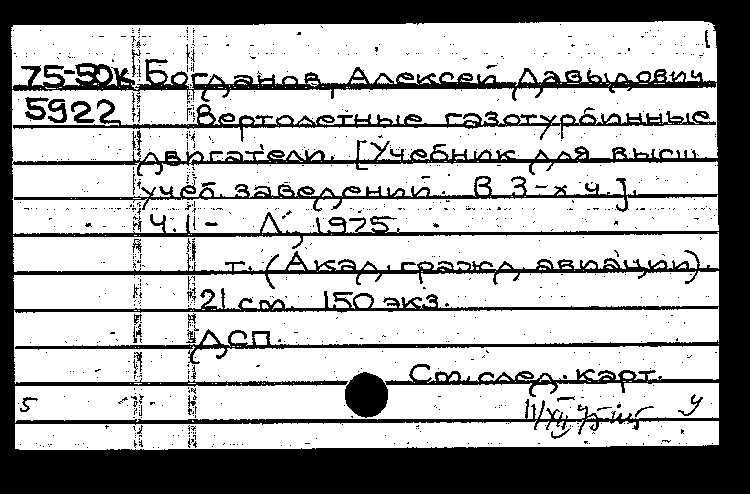 1
75-50к Богданов, Алексей Давыдович
5922 Вертолетные газотурбинные
двигатели. [Учебник для высш.
учеб. заведений. В 3-х ч.].
Ч.1- Л., 1975.
т. (Акад. гражд. авиации).
21 см. 150 экз.
ДСП.
См. след. карт.
5 11/XII 75 у